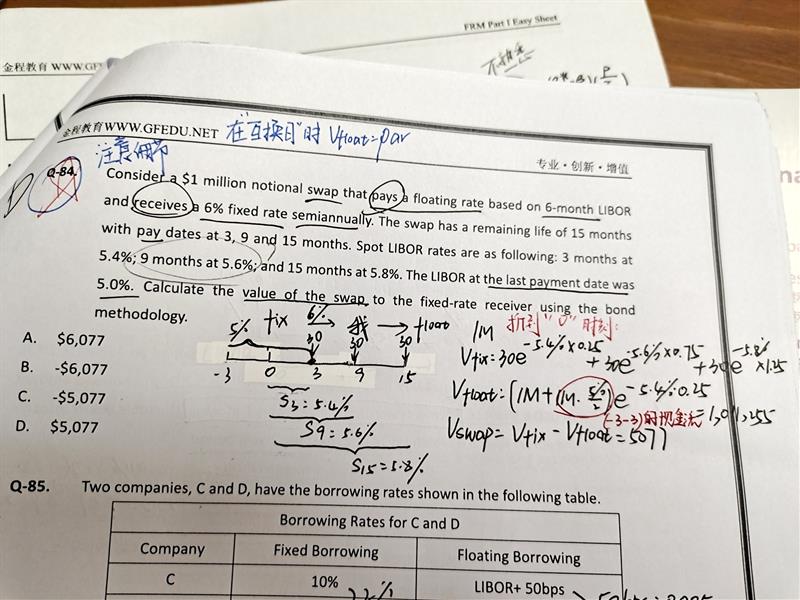 FRM Part I Easy Sheet
金程教育 WWW.GFE
金程教育 WWW.GFEDU.NET
在"互换日"时 Vfloat=par
专业·创新·增值
注意细节
Q-84.
Consider a $1 million notional swap that pays a floating rate based on 6-month LIBOR
and receives a 6% fixed rate semiannually. The swap has a remaining life of 15 months
with pay dates at 3, 9 and 15 months. Spot LIBOR rates are as following: 3 months at
5.4%; 9 months at 5.6%; and 15 months at 5.8%. The LIBOR at the last payment date was
5.0%. Calculate the value of the swap to the fixed-rate receiver using the bond
methodology.
A. $6,077
B. -$6,077
C. -$5,077
D. $5,077
5% fix 6% 我 → float
30 30 30
-3 0 3 9 15
S3=5.4%
S9=5.6%
S15=5.8%
1M 折到"0"时刻:
Vfix=30e-5.4%×0.25+30e-5.6%×0.75+30e-5.8%×1.25
Vfloat=(1M+1M·5%/2)e-5.4%·0.25
(-3-3)的现金流
Vswap=Vfix-Vfloat=5077
Q-85. Two companies, C and D, have the borrowing rates shown in the following table.
Borrowing Rates for C and D
Company Fixed Borrowing Floating Borrowing
C 10% LIBOR+ 50bps